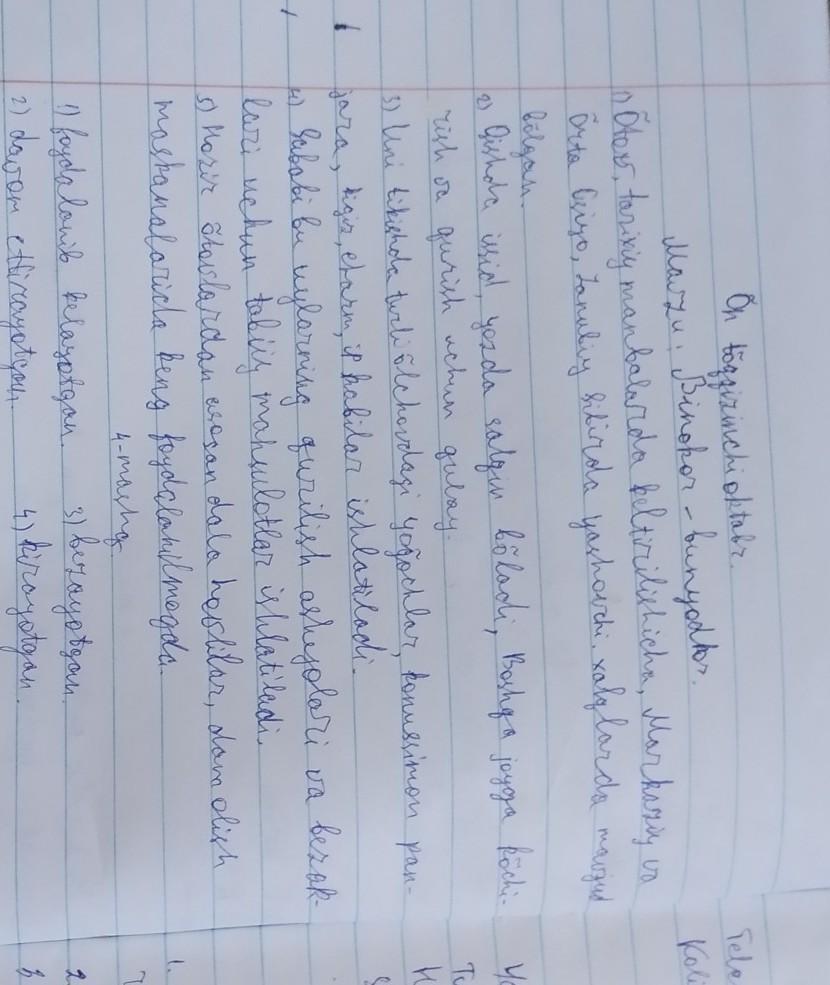 Õn tõqqizinchi oktabr.
Mavzu: Binokor - bunyodkor.
1) Õtov, tarixiy manbalarda keltirilishicha, Markaziy va
Õrta Osiyo, Janubiy Sibirda yashovchi xalqlarda mavjud
bõlgan.
2) Qishda issiq, yozda salqin bõladi, Boshqa joyga kõchi-
rish va qurish uchun qulay.
3) Uni tikishda turli õlchovdagi yoğochlar, konussimon pan-
jara, kigiz, charm, ip kabilar ishlatiladi.
4) Sababi bu uylarning qurilish ashyolari va bezak-
lari uchun tabiiy mahsulotlar ishlatiladi.
5) Hozir õtovlardan asosan dala hovlilar, dam olish
maskanalarida keng foydalanilmoqda.
4-mashq.
1) foydalanib kelayotgan. 3) bezayotgan.
2) davom ettirayotgan. 4) kirayotgan.
1.
2
3